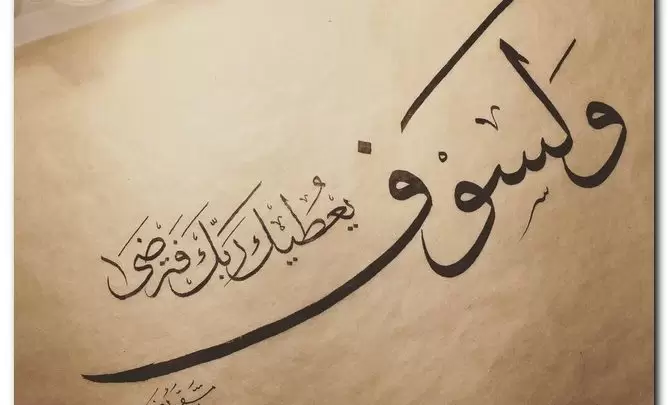 وَلسوْف
يُعطيك رَبّك فَترضَى